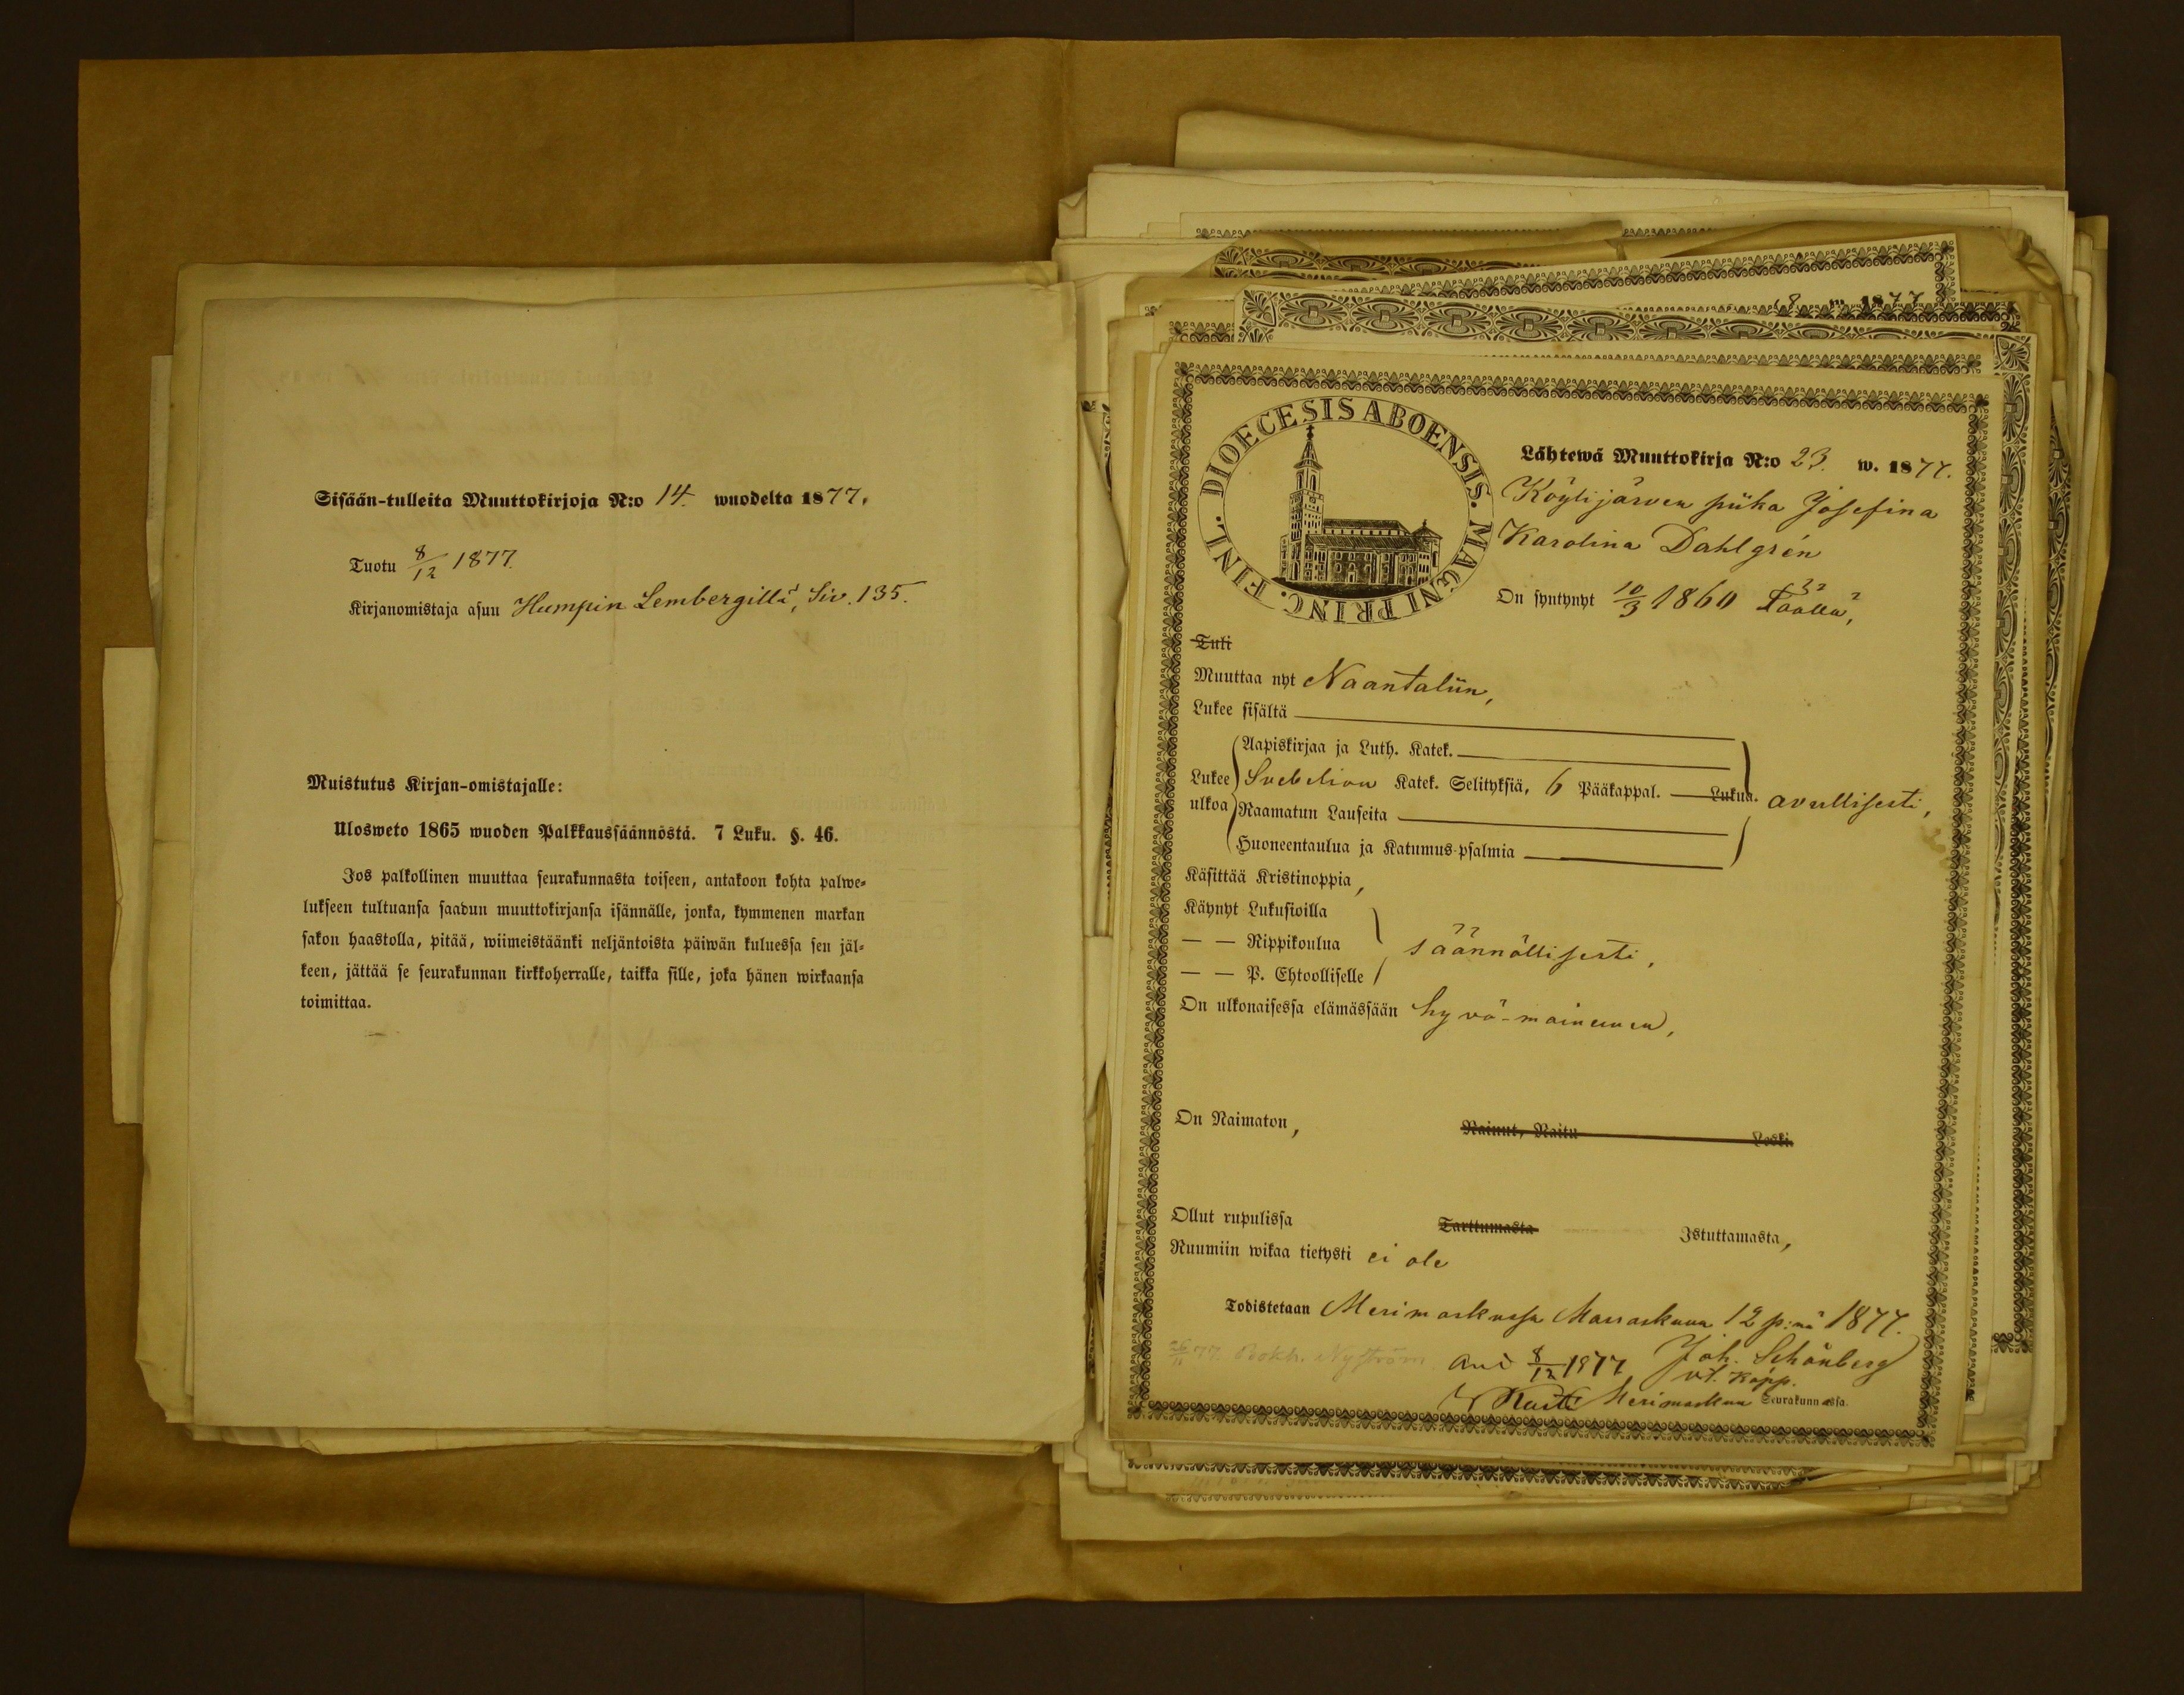 Sisään-tulleita Muuttokirjoja N:o 14. wuodelta 1877.
Tuotu 8/12 1877.
Kirjanomistaja asuu Humpin Lembergillä, Siv. 135.
Muistutus Kirjan-omistajalle:
Ulosweto 1865 wuoden Palkkaussäännöstä. 7 Luku. §. 46.
Jos palkollinen muuttaa seurakunnasta toiseen, antakoon kohta palwe-
lukseen tultuansa saadun muuttokirjansa isännälle, jonka, kymmenen markan
sakon haastolla, pitää, wiimeistäänki neljäntoista päiwän kuluessa sen jäl-
keen, jättää se seurakunnan kirkkoherralle, taikka sille, joka hänen wirkaansa
toimittaa.
1877
DIOECESIS ABOENSIS. MAGNI PRINC. FINL.
Lähtewä Muuttokirja N:o 23. w. 1877.
Köylijärven piika Josefina
Karolina Dahlgrén
On syntynyt 10/3 1860 Täällä,
Tuli
Muuttaa nyt Naantaliin,
Lukee sisältä
Aapiskirjaa ja Luth. Katek.
Lukee ulkoa Svebelion Katek. Selityksiä, 6 Pääkappal. Lukua. avullisesti,
Raamatun Lauseita
Huoneentaulua ja Katumus-psalmia
Käsittää Kristinoppia,
Käynyt Lukusioilla
— — Rippikoulua säännöllisesti,
— — P. Ehtoolliselle
On ulkonaisessa elämässään hyvä-maineinen,
On Naimaton, Nainut, Naitu Leski.
Ollut rupulissa Tarttumasta Istuttamasta,
Ruumiin wikaa tietysti ei ole
Todistetaan Merimaskussa Marraskuun 12 p:nä 1877.
26/11 77. Bokh. Nyström Ank 8/12 1877 Joh. Schönberg
vt. Kapp.
Merimaskun Seurakunnassa.